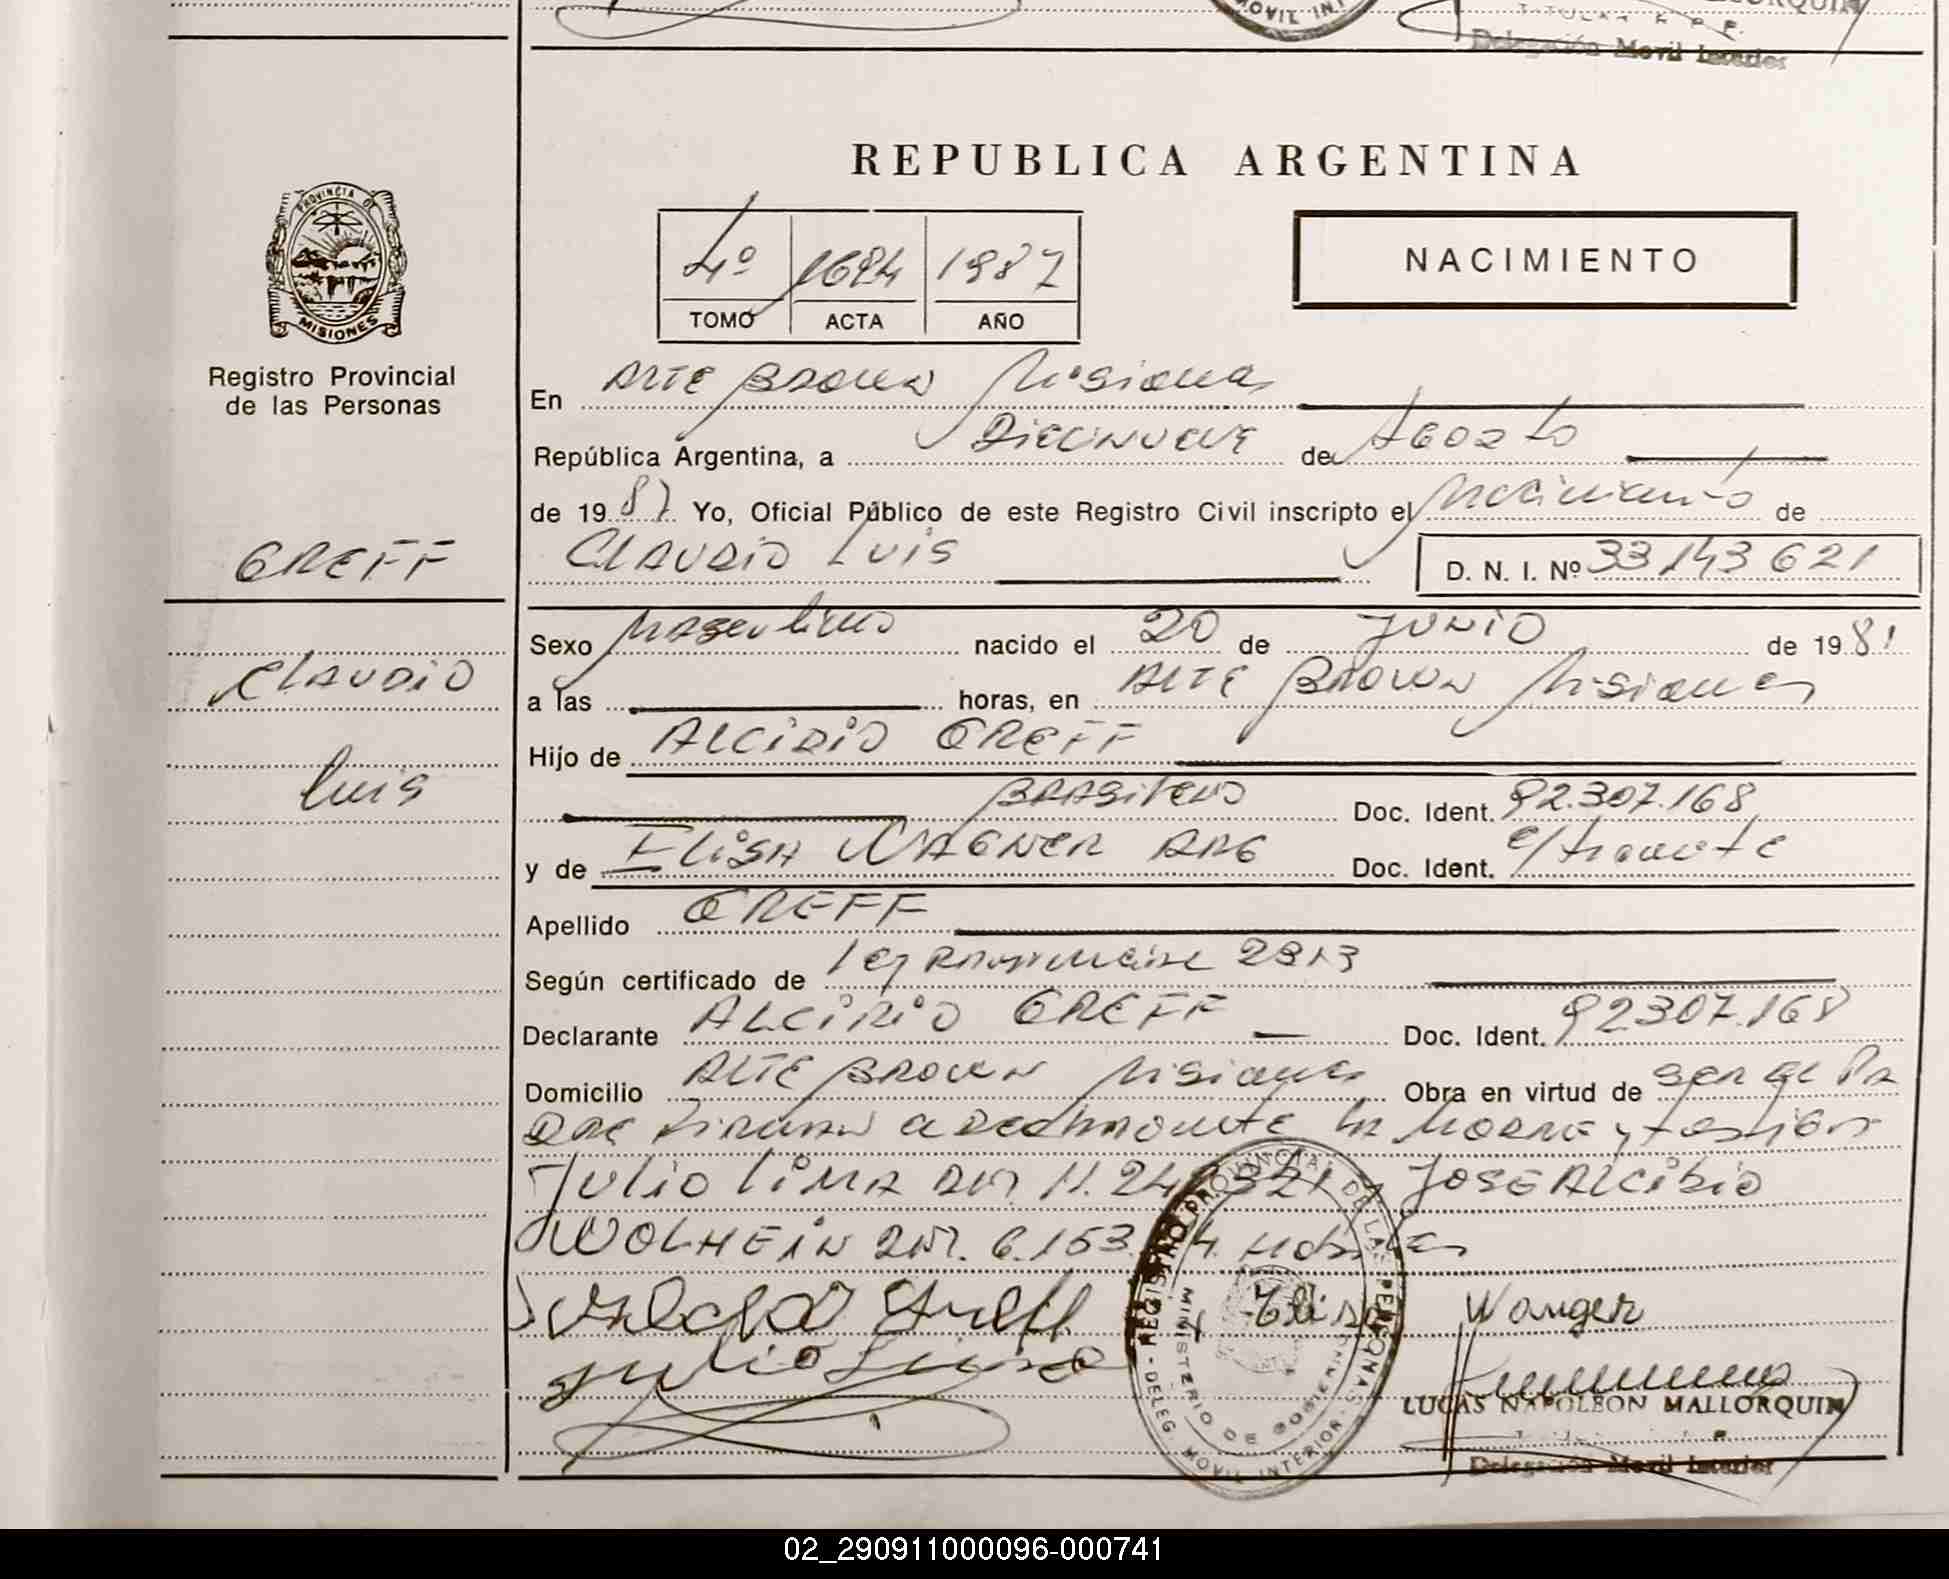 MOVIL INT
MALLORQUIN
TITULAR R. P.
Delegación Movil Interior
REPUBLICA ARGENTINA
PROVINCIA DE
MISIONES
4º 1684 1987
TOMO ACTA AÑO
NACIMIENTO
Registro Provincial
de las Personas
En Alte Brown Misiones
República Argentina, a Diecinueve de Agosto
de 1987 Yo, Oficial Público de este Registro Civil inscripto el Nacimiento de
GREFF
CLAUDIO LUIS
D. N. I. Nº 33143621
CLAUDIO
Luis
Sexo Masculino nacido el 20 de JUNIO de 1981
a las horas, en Alte Brown Misiones
Hijo de ALCIDIO GREFF
BRASILERO Doc. Ident. 92.307.168
y de ELISA WAGNER ARG Doc. Ident. e/tramite
Apellido GREFF
Según certificado de 2813
Declarante ALCIDIO GREFF Doc. Ident. 92307.168
Domicilio Alte Brown Misiones Obra en virtud de ser el Pa
dre Firman la Madre y testigos
Julio Lima DNI. 11.24 321 JOSE ALCIBIO
WOLHEIN DNI. 6.153. 4
Greff Elisa Wanger
Julio Lima
REGISTRO PROVINCIAL DE LAS PERSONAS
MINISTERIO DE GOBIERNO
DELEG. MOVIL INTERIOR
LUCAS NAPOLEON MALLORQUIN
Delegación Movil Interior
02_290911000096-000741